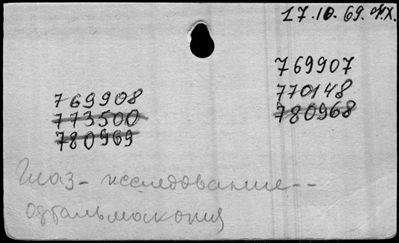 17.10.69.
769907
770148
780968
769908
773500
780969
Глаз- исследование--
офтальмоскопия